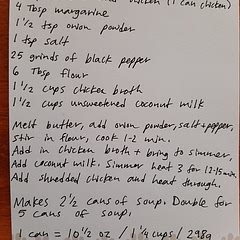 chicken (1 can chicken)
4 Tbsp margarine
1 1/2 tsp onion powder
1 tsp salt
25 grinds of black pepper
6 Tbsp flour
1 1/2 cups chicken broth
1 1/2 cups unsweetened coconut milk
Melt butter, add onion powder, salt + pepper,
stir in flour, cook 1-2 min.
Add in chicken broth + bring to simmer.
Add coconut milk. Simmer heat 3 for 12-15 min
Add shredded chicken and heat through.
Makes 2 1/2 cans of soup. Double for
5 cans of soup.
1 can = 10 1/2 oz / 1 1/4 cups / 298g